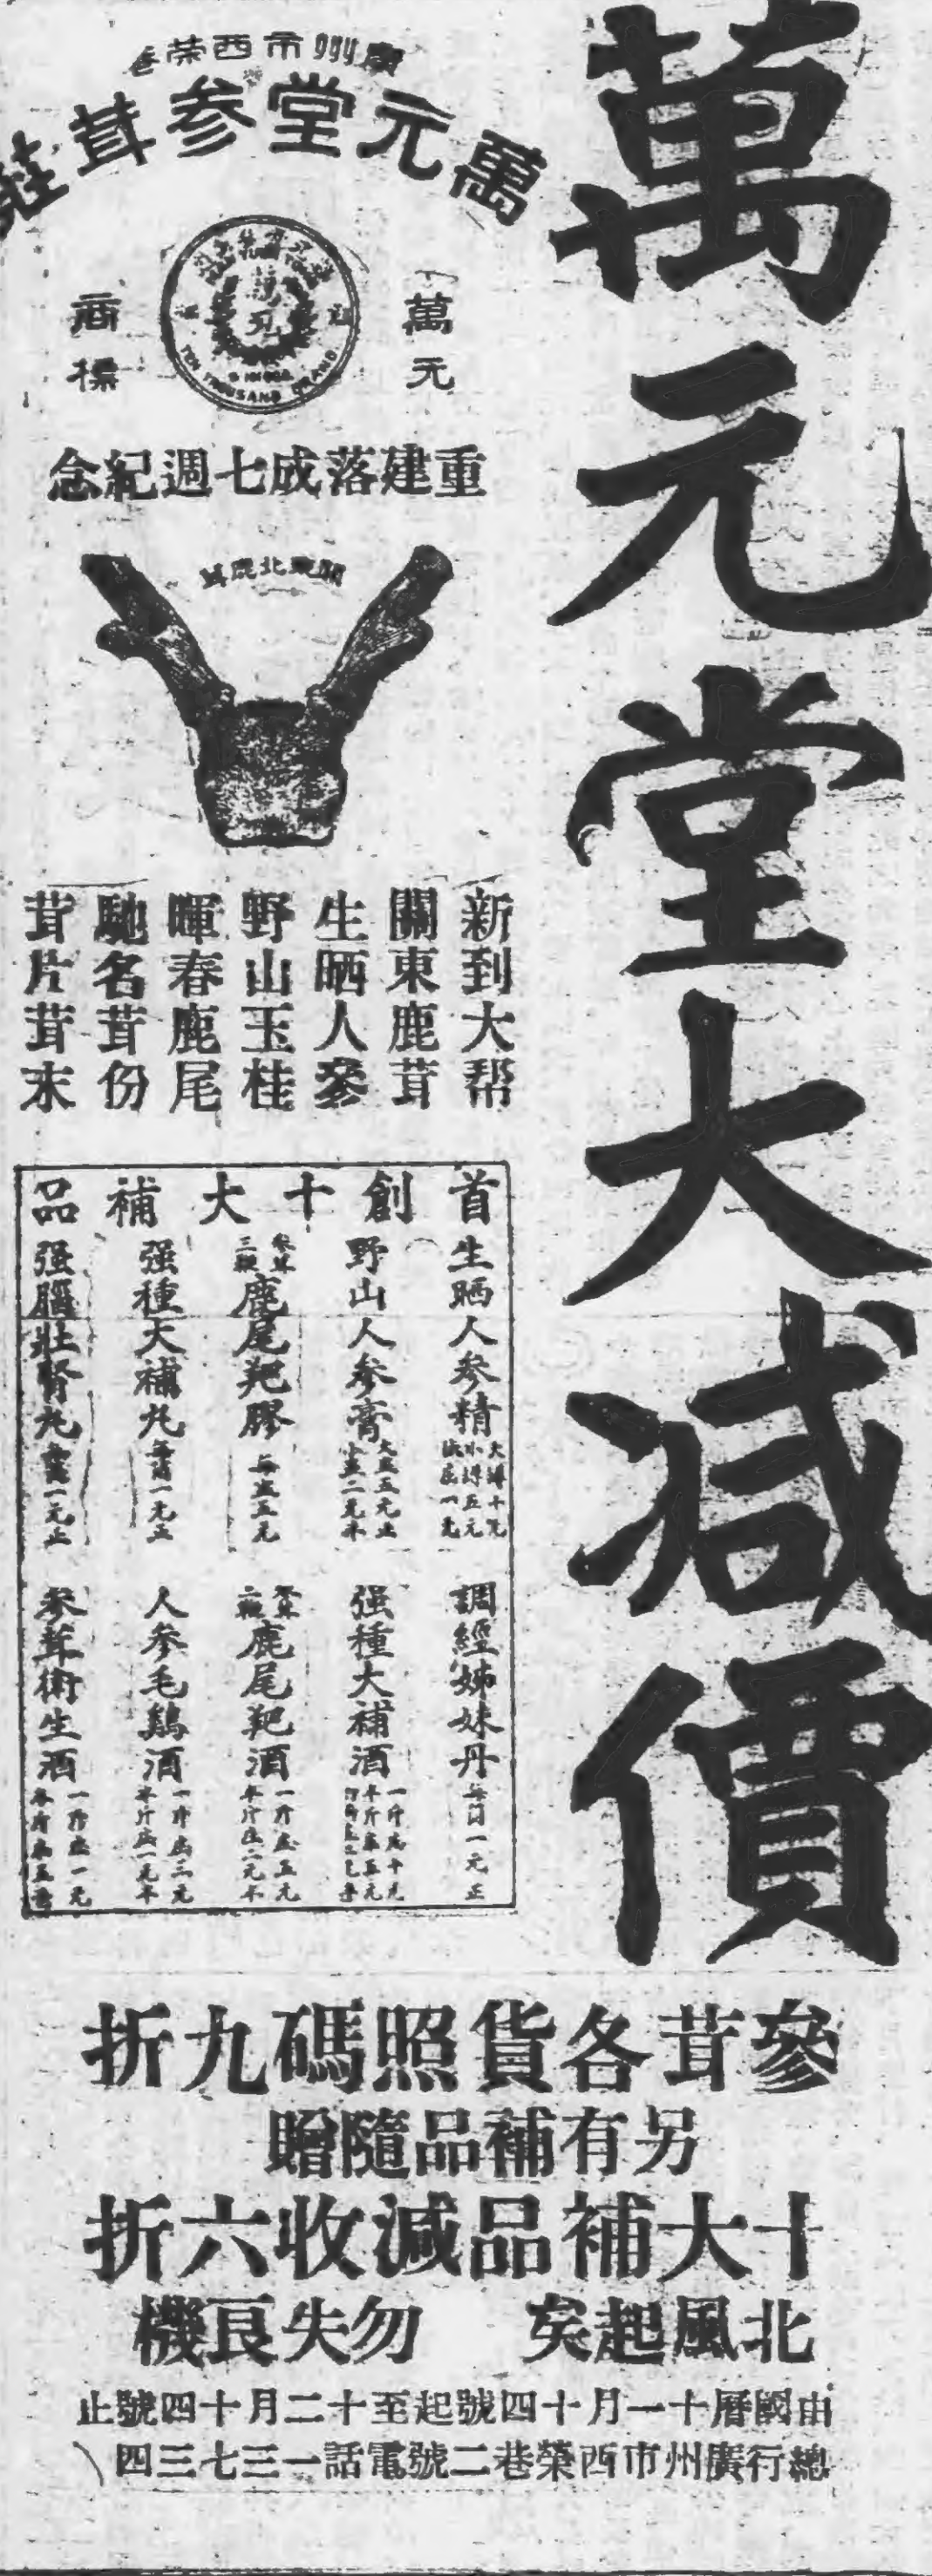 萬元堂大減價
廣州市西榮巷
萬元堂參茸莊
萬元
商標
萬元
TEN THOUSAND BRAND
重建落成七週紀念
關東北鹿茸
新到大帮
關東鹿茸
生晒人參
野山玉桂
暉春鹿尾
馳名茸份
茸片茸末
首創十大補品
生晒人參精
大罇十元
小罇五元
野山人參膏
大盅五元正
小盅二元半
參茸三鞭鹿尾羓膠
每盅五元
强種大補丸
每蒲一元正
强腦壯腎丸
一元正
調經姊妹丹
每一元正
强種大補酒
一斤庒十元
半斤庒五元
參茸三鞭鹿尾羓酒
一斤庒五元
半斤庒二元半
人參毛鷄酒
一斤庒二元
參茸衛生酒
一斤庒一元
參茸各貨照碼九折
另有補品隨贈
十大補品減收六折
北風起矣 勿失良機
由國曆十一月十四號起至十二月十四號止
總行廣州市西榮巷二號電話一三七三四